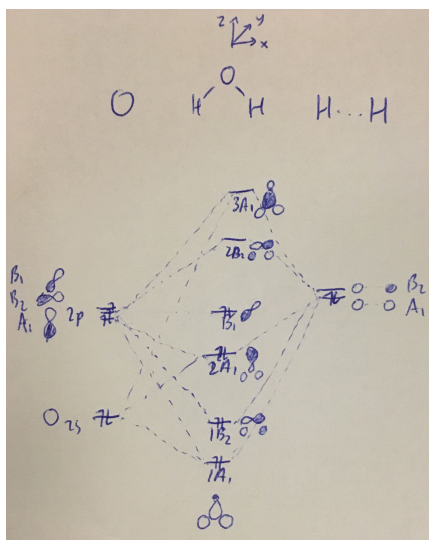 z y
x
O
O H H
H...H
3A₁
2B₂
B₁
B₂
A₁ 2p
B₁
B₂
A₁
2A₁
2s
1B₂
1A₁